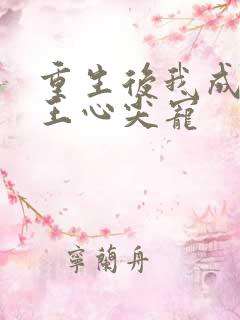 重生後我成
王心尖寵
寧蘭舟